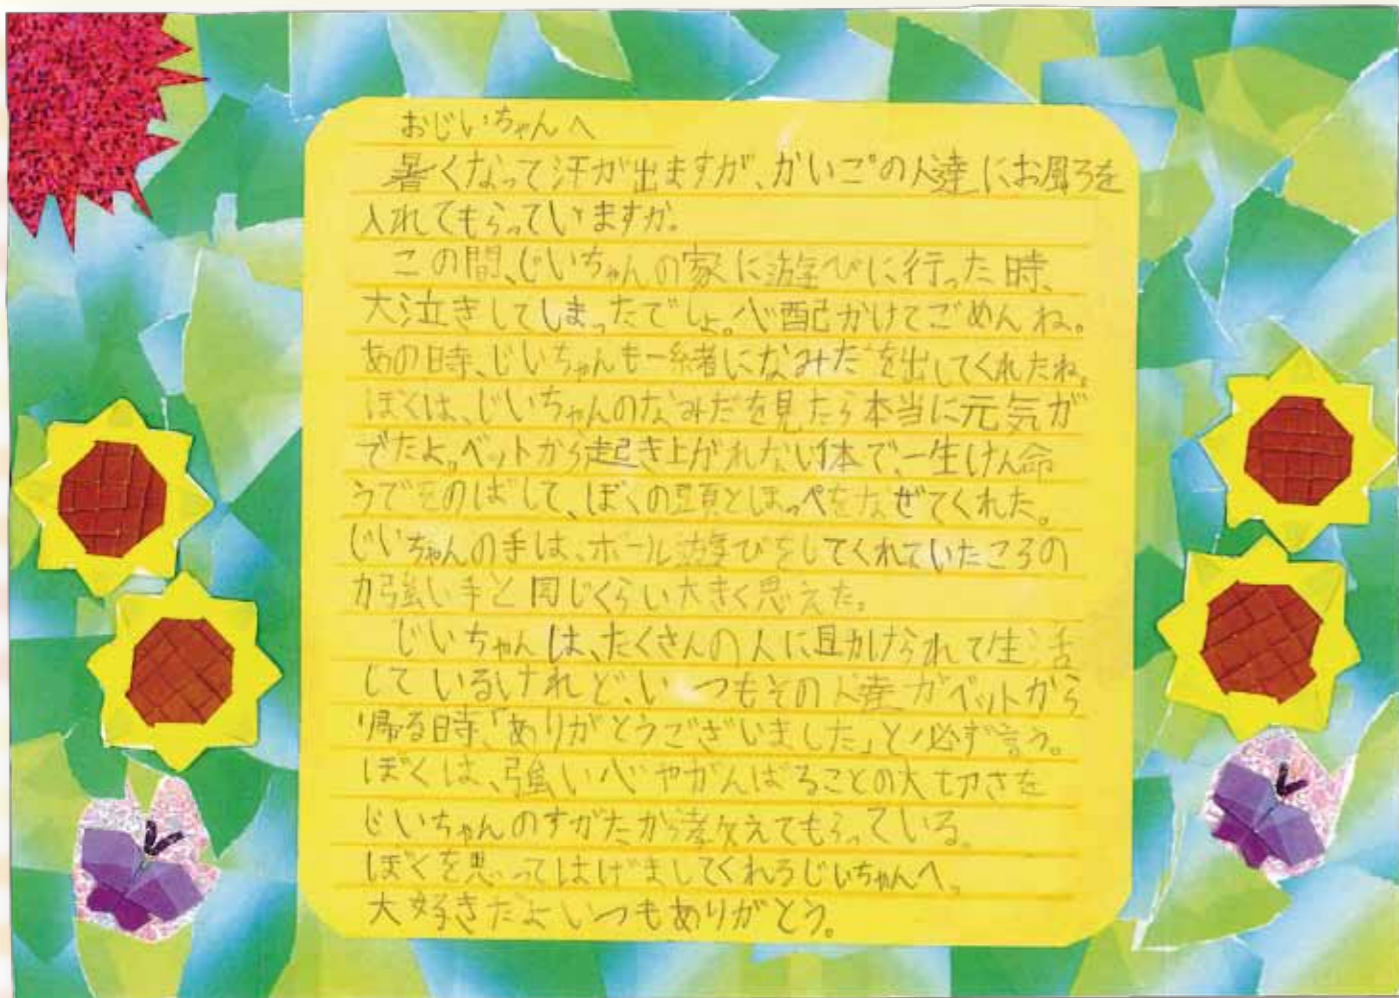 おじいちゃんへ
暑くなって汗が出ますが、かいごの人達にお風ろを
入れてもらっていますか。
この間、じいちゃんの家に遊びに行った時、
大泣きしてしまったでしょ。心配かけてごめんね。
あの時、じいちゃんも一緒になみだを出してくれたね。
ぼくは、じいちゃんのなみだを見たら本当に元気が
でたよ。ベットから起き上がれない体で、一生けん命
うでをのばして、ぼくの頭とほっぺをなぜてくれた。
じいちゃんの手は、ボール遊びをしてくれていたころの
力強い手と同じくらい大きく思えた。
じいちゃんは、たくさんの人に助けられて生活
しているけれど、いつもその人達がベットから
帰る時、「ありがとうございました」と必ず言う。
ぼくは、強い心やがんばることの大切さを
じいちゃんのすがたから教えてもらっている。
ぼくを思ってはげましてくれるじいちゃんへ。
大好きだよいつもありがとう。